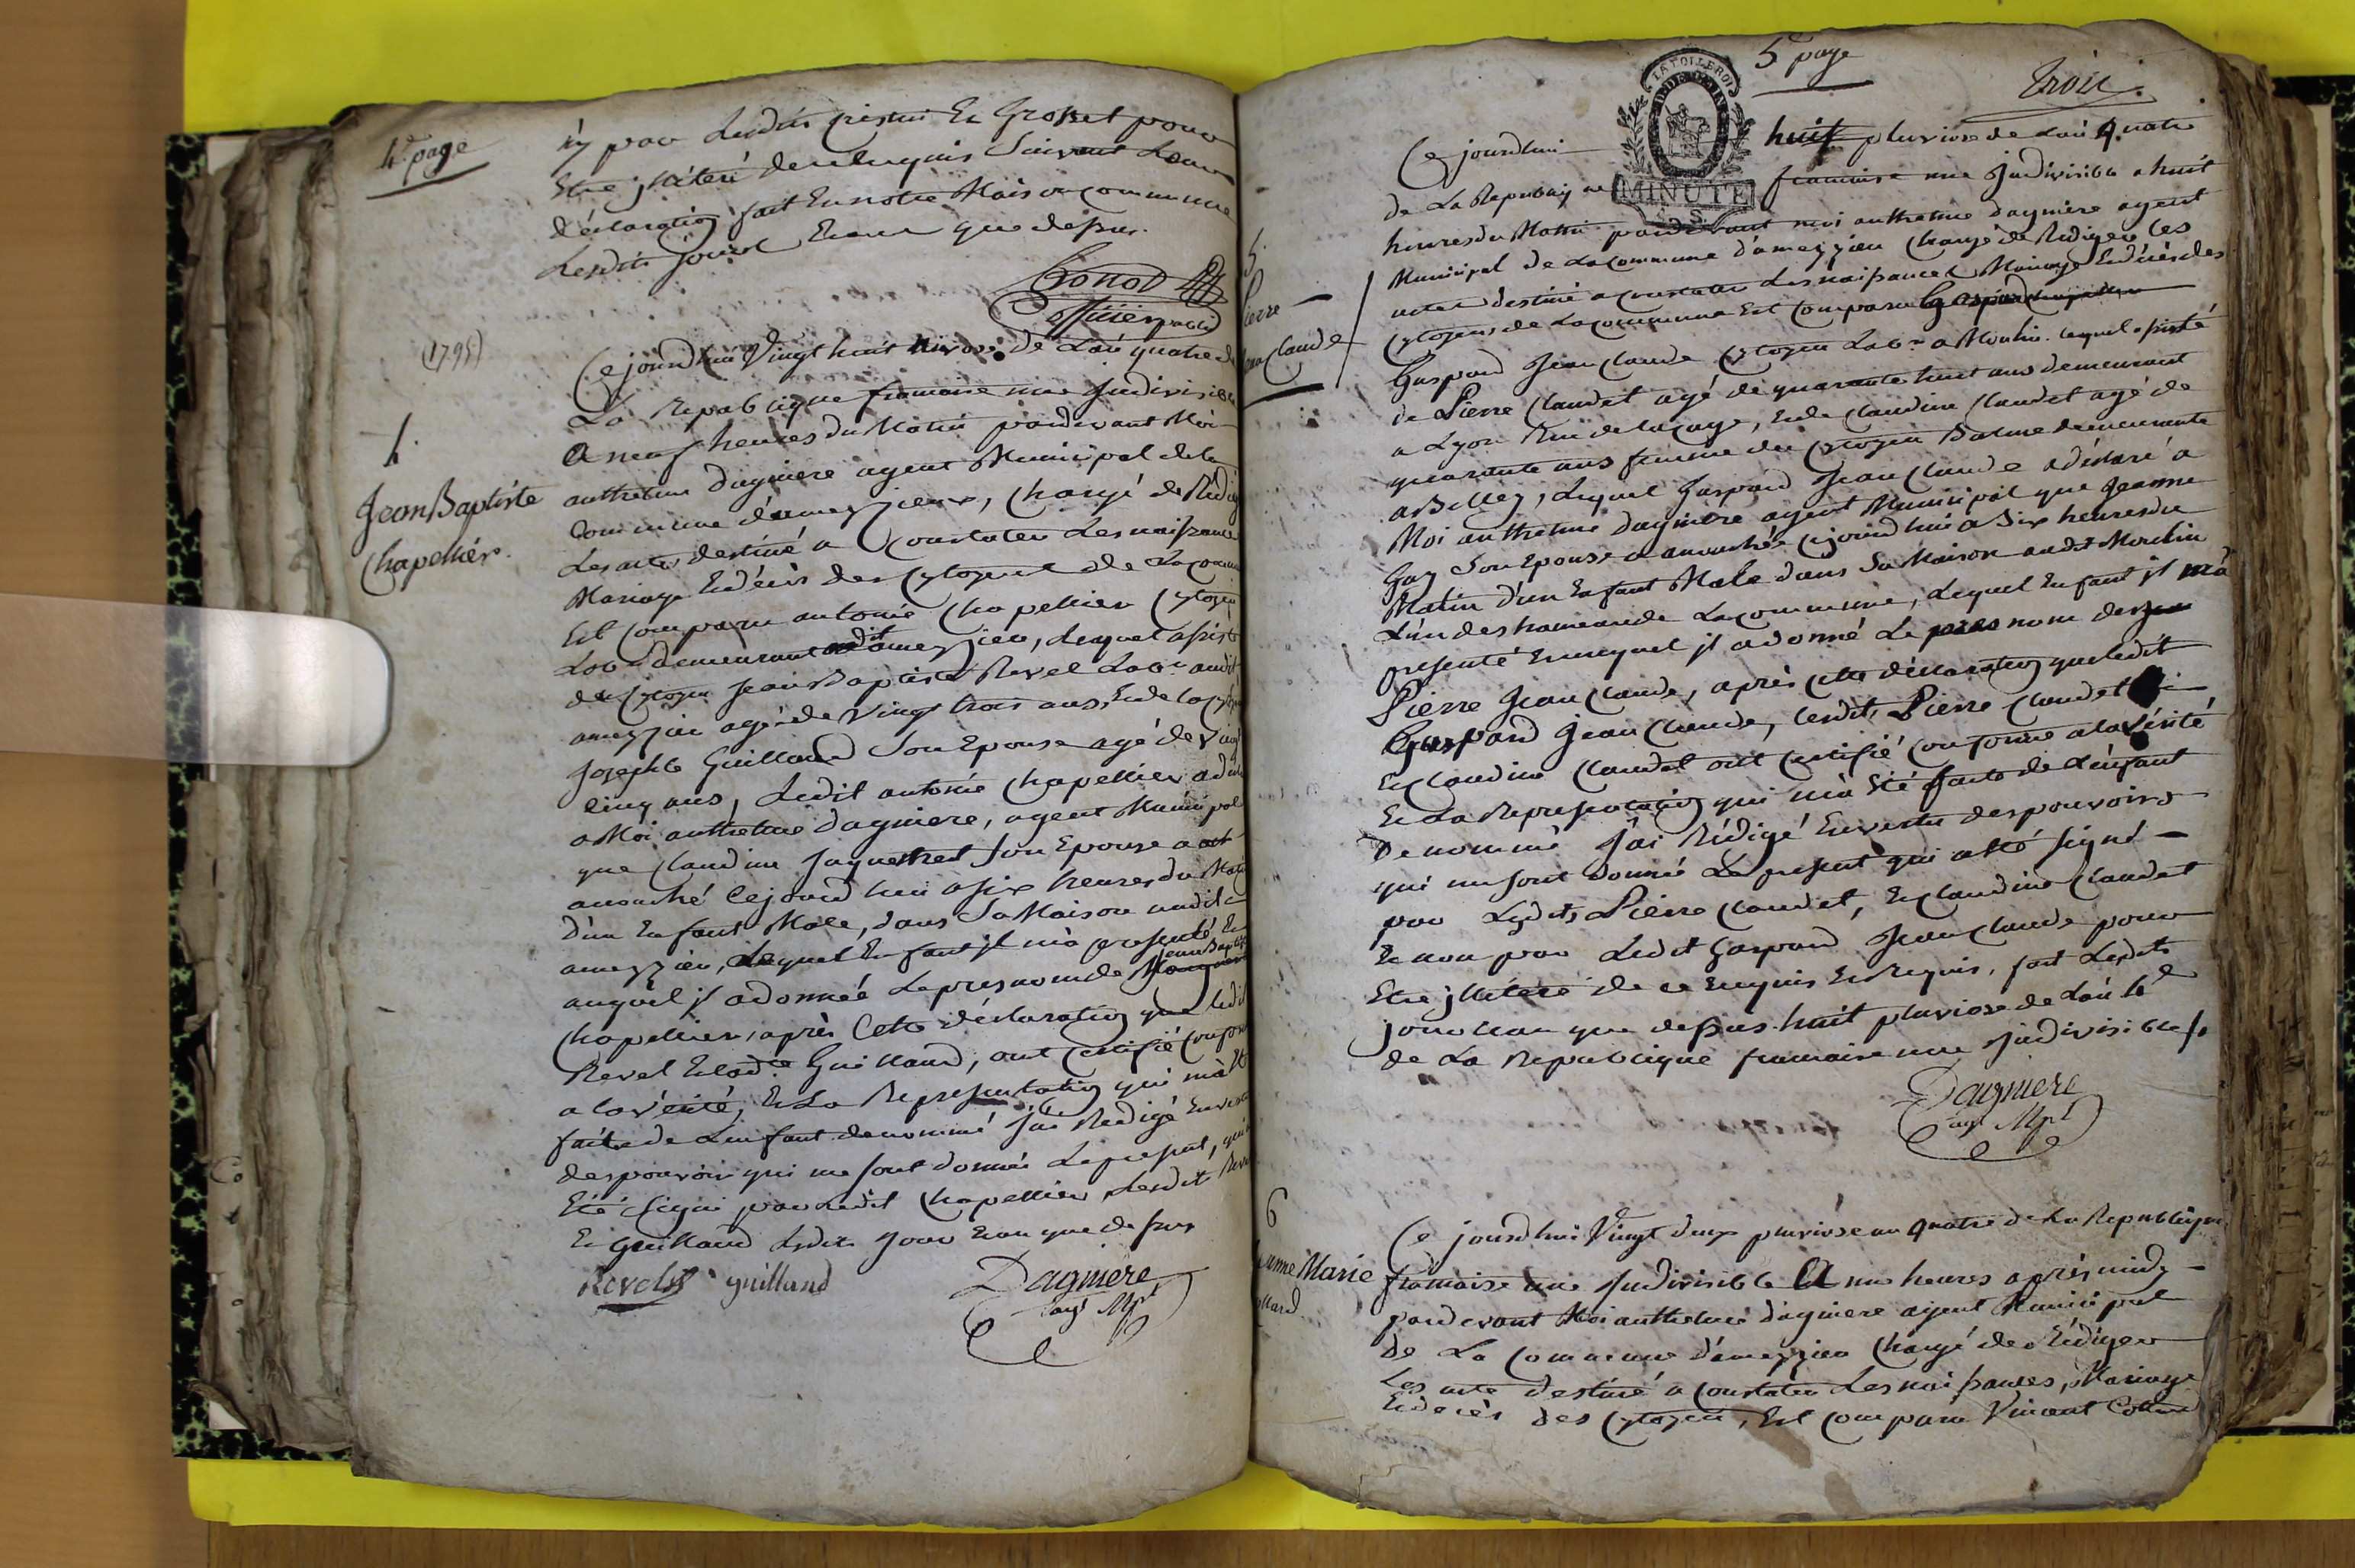 4e page
ny par lesdits cristin Et Grosset pour
Etre jlliteré de ce Enquis suivant Leur
déclaration fait En notre Maison commune
lesdits jour et Enan que dessus.
officier public
(1795)
Ce jourdhui Vingt huit nivose de Lan quatre de
La republique francaise une jndivisible
a neuf heures du Matin pardevant Moi
anthelme dagniere agent Municipal de la
Commune d'ameyzieux, chargé de Rédiger
Les actes destiné a Constater Les naissance
Mariage Et décès des cytoyens de La commune
Est comparu antoine chapellier cytoyen
Labr demeurant audit ameyzieu, Lequel assisté
du cytoyen Jean Baptiste Revel Labr audit
ameyzieu agé de Vingt trois ans, Et de la cytoyenne
Josephte Guilland Son Epouse agé de vingt
cinq ans, Ledit antoine chapellier a declaré
a Moi anthelme dagniere, agent Municipal
que claudine Son Epouse a
accouché cejourdhui a six heures du Matin
d'un Enfant Male, dans Sa Maison audit
ameyzieu, Lequel Enfant jl m'a presenté Et
Jean Baptiste
auquel jl a donnée Le presnom de
chapellier, après cette déclaration que ledit
Revel Et ladte Guilland, ont certifié conforme
a la vérité, Et La Représentation qui m'a Eté
faite de L'enfant denommé j'ai Redigé En vertu
des pouvoir qui me sont donnés Le present, qui a
Eté signé par Ledit chapellier, Lesdit Revel
Et Guilland Lesdits jour Enan que dessus
Revel guilland Dagniere
agt Mpl
4.
Jean Baptiste
Chapellier.
5e page
trois.
LA LOI LE ROI
MINUTE
S.
Ce jourdhui huit pluviose de Lan quatre
de La Republique francaise une jndivisible a huit
heures du Matin pardevant moi anthelme dagniere agent
Municipal de La commune d'ameyzieu chargé de Rediger les
actes destiné a constater Les naissances Mariage Et décès des
cytoyens de La commune Est comparu Gaspard
Gaspard Jean Claude cytoyen Labr a Moulin. lequel assisté
de Pierre Claudet agé de quarante huit ans demeurant
a Lyon Rue de la cage, Et de claudine Claudet agé de
quarante ans femme du cytoyen Balme demeurante
a Belley, Lequel Gaspard Jean Claude a déclaré a
Moi anthelme dagniere agent Municipal que Jeanne
Gay Son Epouse a accouchée cejourdhui a six heures du
Matin d'un Enfant Male dans Sa Maison audit Moulin
L'un des hameau de La commune, Lequel Enfant jl m'a
presenté Et auquel jl a donné Le presnom de
Pierre Jean Claude, après cette déclaration que ledit
Gaspard Jean Claude, lesdits Pierre Claudet
Et claudine Claudet ont certifié conforme a la vérité
Et La Representation qui m'a Eté faite de L'enfant
Denommé j'ai Rédigé En vertu des pouvoirs
qui me sont donné Le present qui a eté signé
par Lesdits Pierre Claudet, Et claudine Claudet
Et non par Ledit Gaspard Jean Claude pour
Etre jlliteré de ce Enquis Et Requis, fait Lesdits
jour Enan que dessus huit pluviose de Lan 4e
de La Republique francaise une jndivisible.
Dagniere
agt Mpl
5.
Pierre
Jean Claude
6
Marie
Ce jourdhui Vingt deux pluviose an quatre de La Republique
francaise une jndivisible a une heures après midy
pardevant Moi anthelme dagniere agent Municipal
de La commune d'ameyzieu chargé de Rédiger
Les acte destiné a constater Les naissances, Mariage
Et décès des cytoyen, Est comparu Vincent